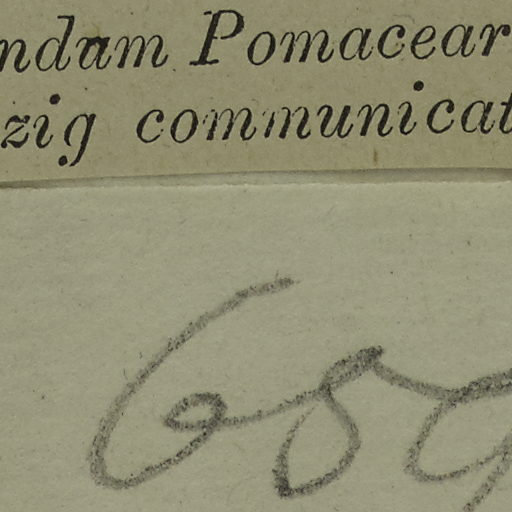 ndum Pomacear
zig communicat
689